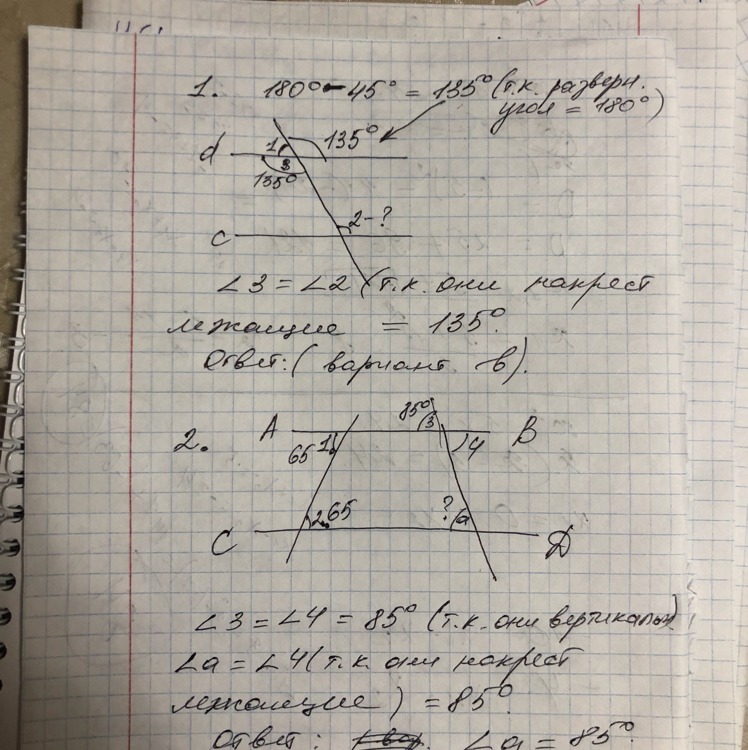 1. 180° - 45° = 135° (т.к. разверн.
угол = 180°)
d 1 135°
3
135°
c 2 - ?
∠3 = ∠2 (т.к. они накрест
лежащие = 135°.
Ответ: ( вариант в).
2. A 65 1 85° 3 4 B
C 2 65 ? a D
∠3 = ∠4 = 85° (т.к. они вертикальн)
∠a = ∠4 (т.к. они накрест
лежащие) = 85°.
Ответ: ∠a = 85°